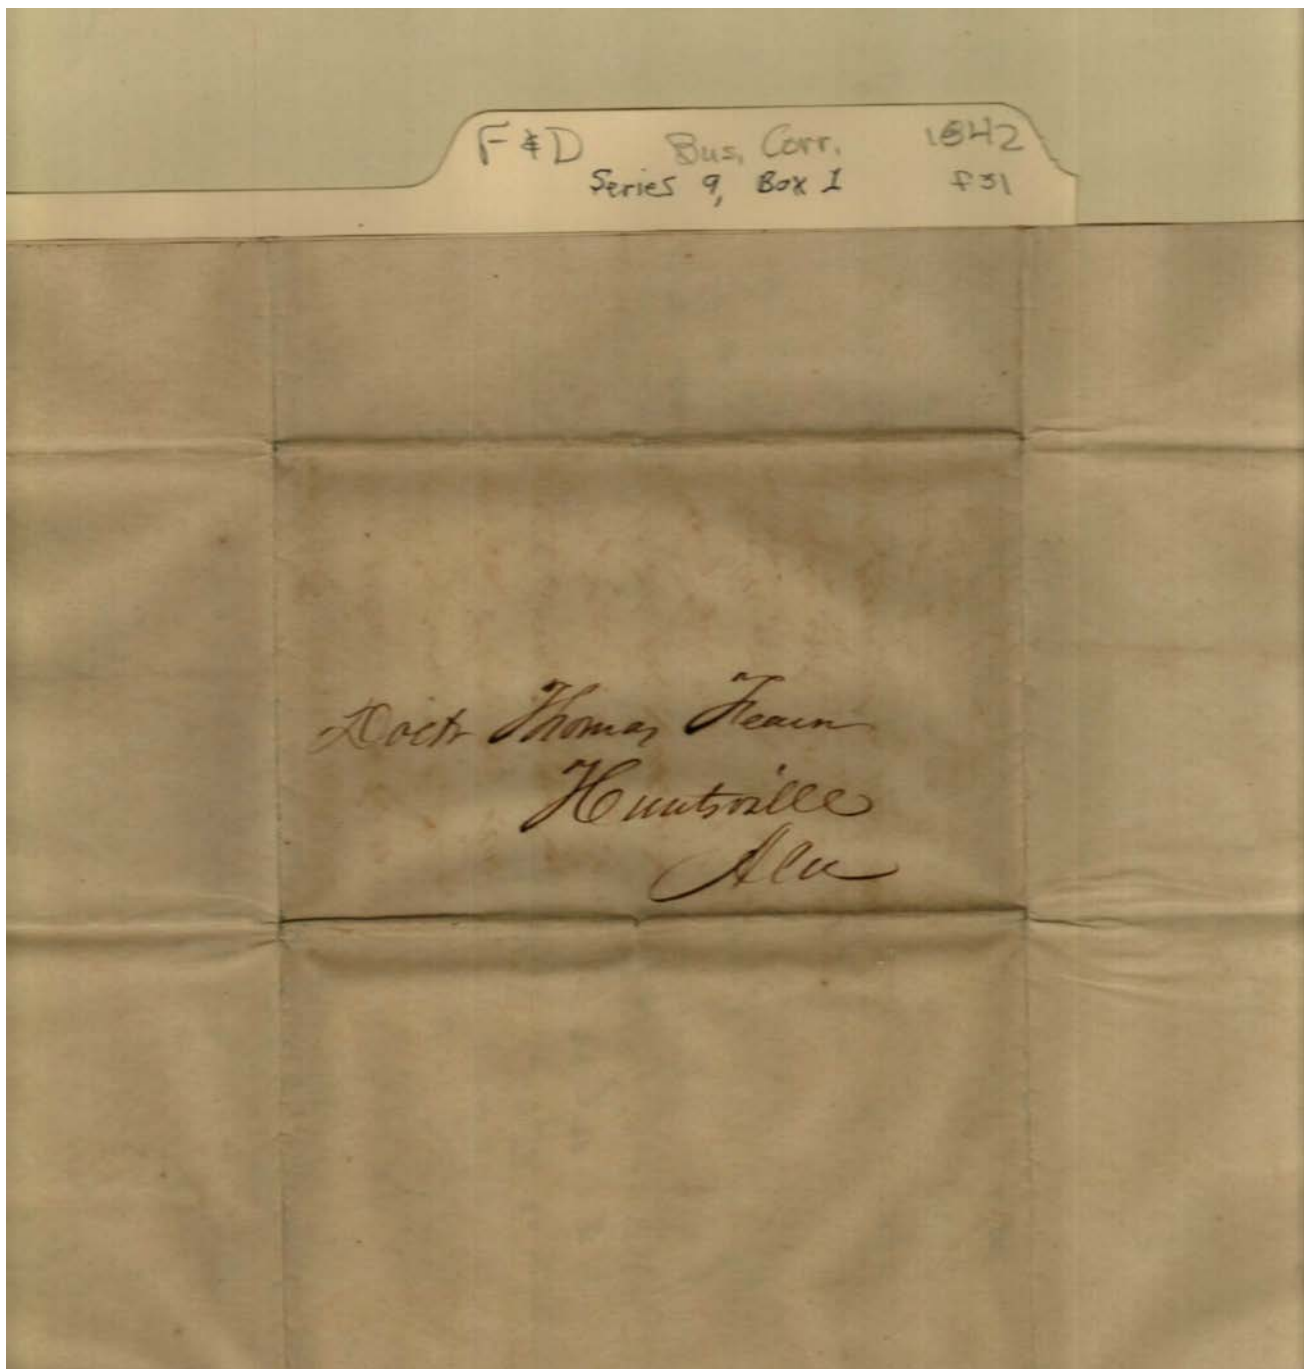 F & D Bus. Corr. 1842
Series 9, Box 1 f31
Doctr Thomas Fearn
Huntsville
Ala